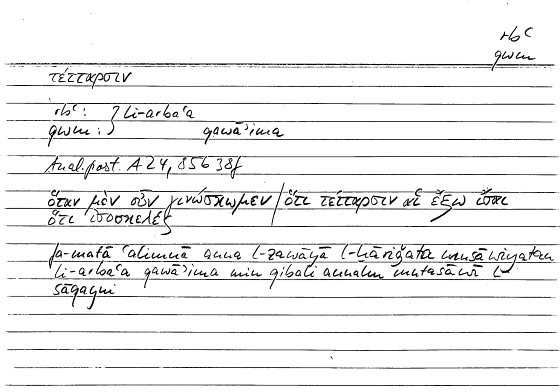 rbʿ
qwm
τέτταρσιν
rbʿ : } li-arbaʿa
qwm : } qawāʾima
Anal. post. A 24, 85b38f
ὅταν μὲν οὖν γινώσκωμεν / ὅτι τέτταρσιν αἱ ἔξω ἴσαι
ὅτι ἰσοσκελές
fa-matā ʿalimnā anna l-zawāyā l-ḫāriǧata musāwiyatun
li-arbaʿa qawāʾima min qibali annahu mutasāwī l-
sāqayni